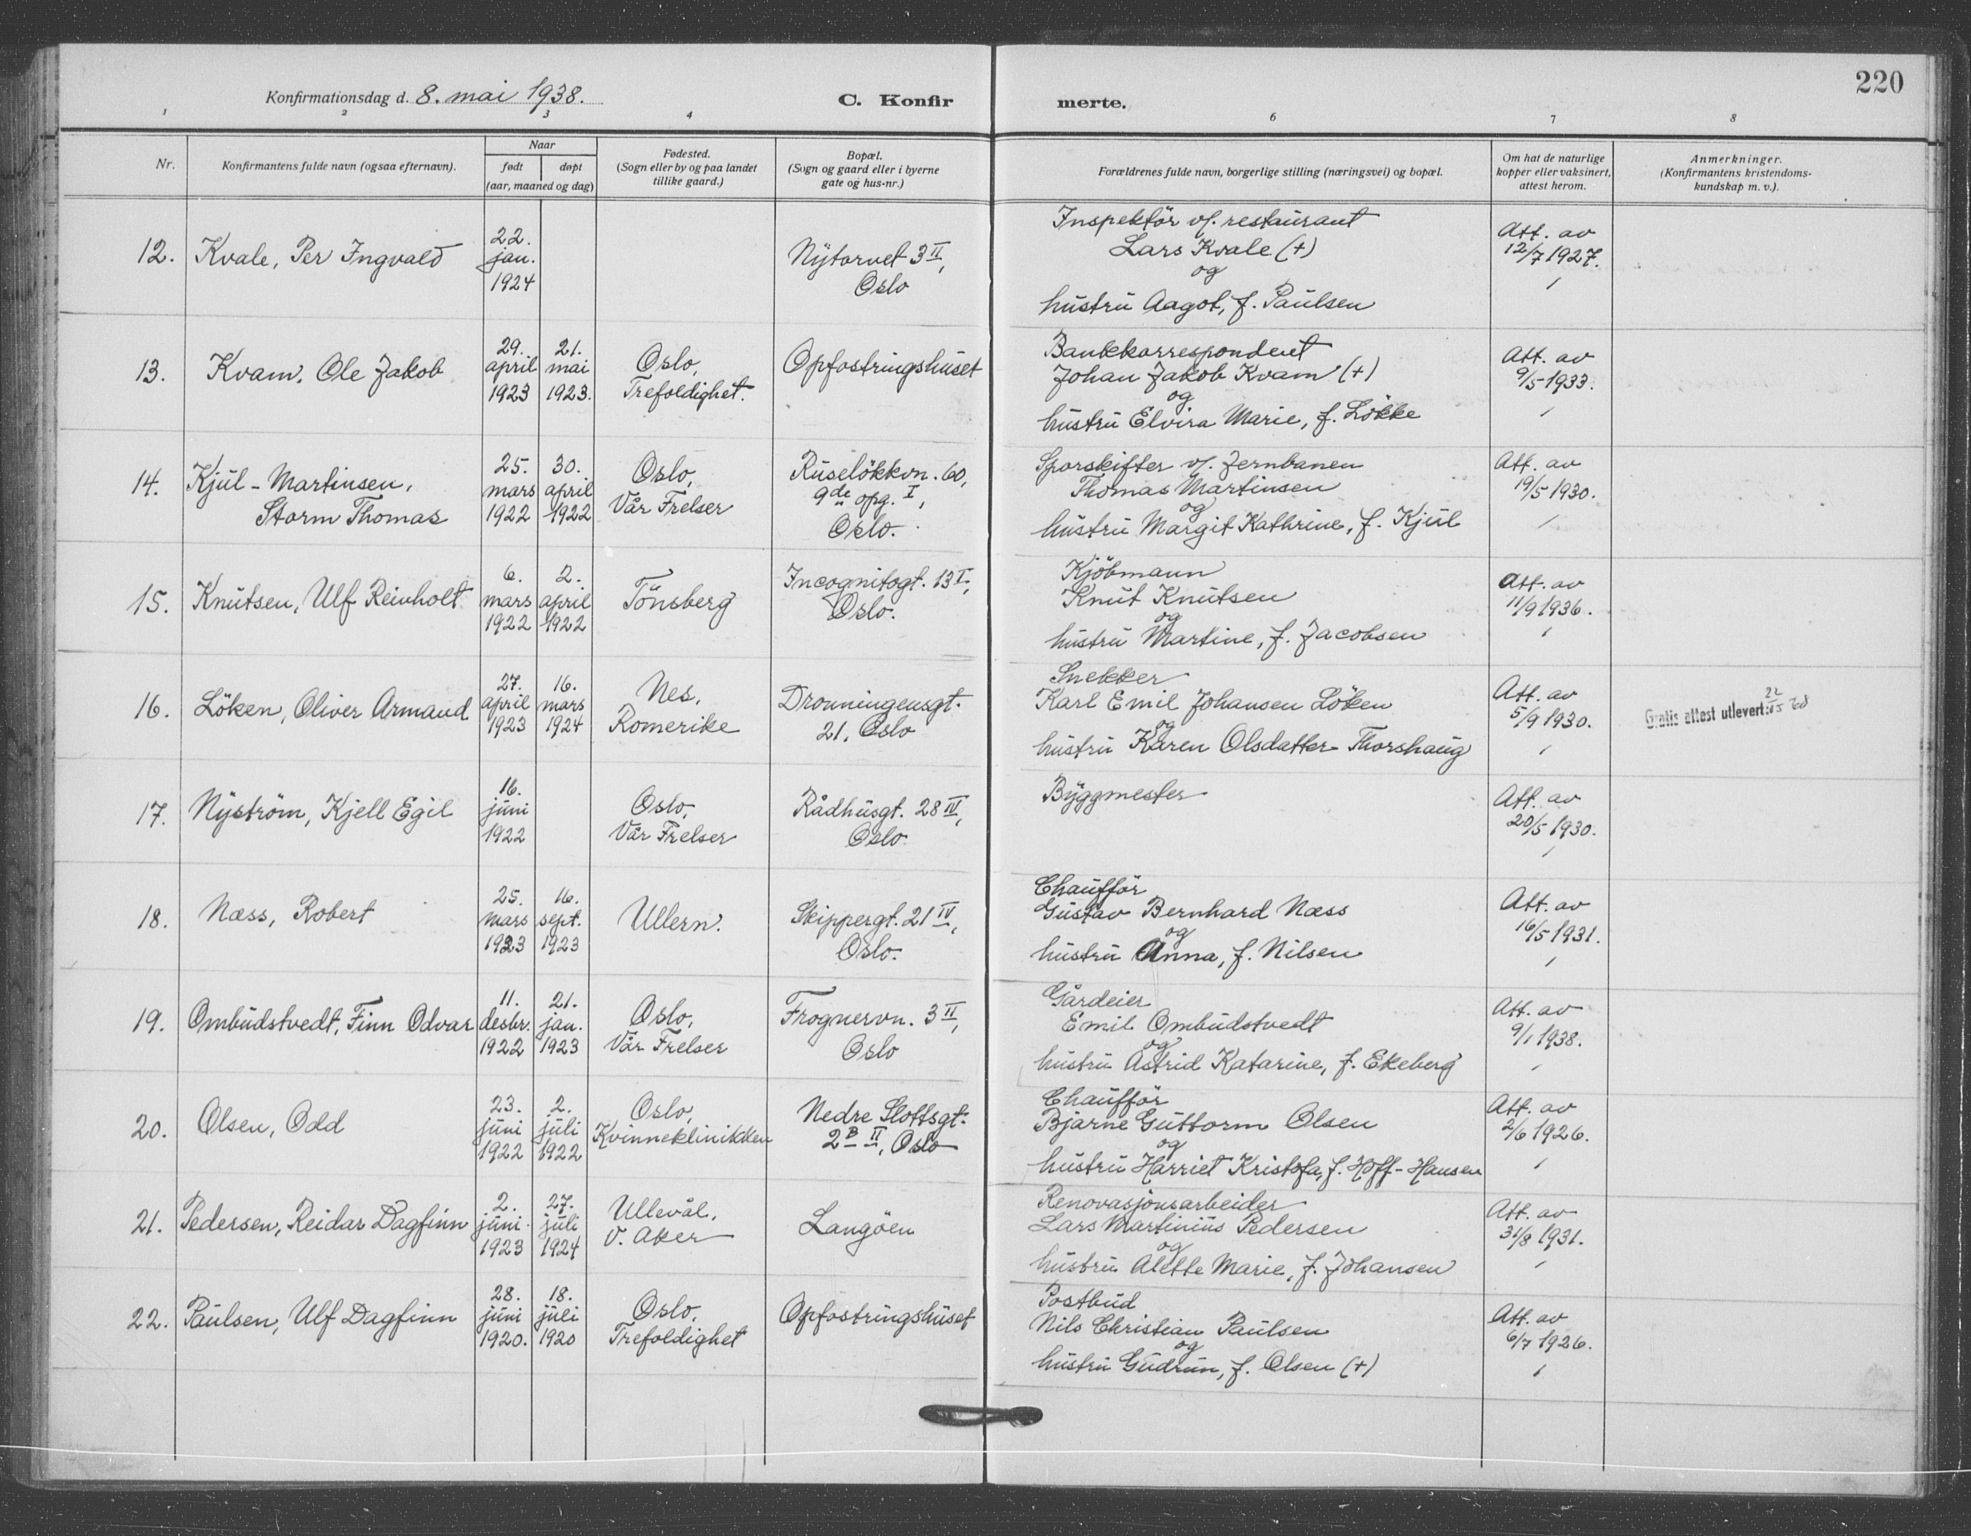 220
Konfirmationsdag d. 8. mai 1938. C. Konfirmerte.
1 2 3 4 6 7 8
Nr.
Konfirmantens fulde navn (ogsaa efternavn).
Naar
født døpt
(aar, maaned og dag)
Fødested.
(Sogn eller by og paa landet
tillike gaard.)
Bopæl.
(Sogn og gaard eller i byerne
gate og hus-nr.)
Forældrenes fulde navn, borgerlige stilling (næringsvei) og bopæl.
Om hat de naturlige
kopper eller vaksinert,
attest herom.
Anmerkninger.
(Konfirmantens kristendoms-
kundskap m. v.).
12. Kvale, Per Ingvald
22.
jan.
1924
Nytorvet 3 II,
Oslo
Inspektör v/. restaurant
Lars Kvale (+)
og
hustru Aagot, f. Paulsen
Att. av
12/7 1927.
13. Kvam, Ole Jakob
29. 21.
april mai
1923 1923.
Oslo,
Trefoldighet.
Opfostringshuset
Bankkorrespondent
Johan Jakob Kvam (+)
og
hustru Elvira Marie, f. Lökke
Att. av
9/5 1933.
14. Kjul-Martinsen,
Storm Thomas
25. 30.
mars april
1922 1922
Oslo,
Vår Frelser
Ruselökkvn. 60,
9de opg. I,
Oslo.
Sporskifter v/. Jernbanen
Thomas Martinsen
og
hustru Margit Kathrine, f. Kjul
Att. av
19/5 1930.
15. Knutsen, Ulf Reinholt
6. 2.
mars april
1922 1922
Tönsberg
Incognitogt. 13 I,
Oslo.
Kjöbmann
Knut Knutsen
og
hustru Martine, f. Jacobsen
Att. av
11/9 1936.
16. Löken, Oliver Armand
27. 16.
april mars
1923 1924
Nes,
Romerike
Dronningensgt.
21, Oslo
Snekker
Karl Emil Johansen Löken
og
hustru Karen Olsdatter Thorshaug
Att. av
5/9 1930.
Gratis attest utlevert 22/5 68
17. Nyström, Kjell Egil
16.
juni
1922
Oslo,
Vår Frelser
Rådhusgt. 28 IV,
Oslo.
Byggmester
Att. av
20/5 1930.
18. Næss, Robert
25. 16.
mars sept.
1923 1923
Ullern.
Skippergt. 21 IV,
Oslo.
Chaufför
Gustav Bernhard Næss
og
hustru Anna, f. Nilsen
Att. av
16/5 1931.
19. Ombudstvedt, Finn Odvar
11. 21.
desbr. jan.
1922 1923
Oslo,
Vår Frelser
Frognervn. 3 II,
Oslo
Gårdeier
Emil Ombudstvedt
og
hustru Astrid Katarine, f. Ekeberg
Att. av
9/1 1938.
20. Olsen, Odd
23. 2.
juni juli
1922 1922
Oslo,
Kvinneklinikken
Nedre Slottsgt.
2 B II, Oslo
Chaufför
Bjarne Guttorm Olsen
og
hustru Harriet Kristofa, f. Hoff-Hansen
Att. av
2/6 1926.
21. Pedersen, Reidar Dagfinn
2. 27.
juni juli
1923 1924
Ullevål,
V. Aker
Langöen
Renovasjonsarbeider
Lars Martinius Pedersen
og
hustru Alette Marie, f. Johansen
Att. av
31/8 1931.
22. Paulsen, Ulf Dagfinn
28. 18.
juni juli
1920. 1920
Oslo,
Trefoldighet
Opfostringshuset
Postbud
Nils Christian Paulsen
og
hustru Gudrun, f. Olsen (+)
Att. av
6/7 1926.